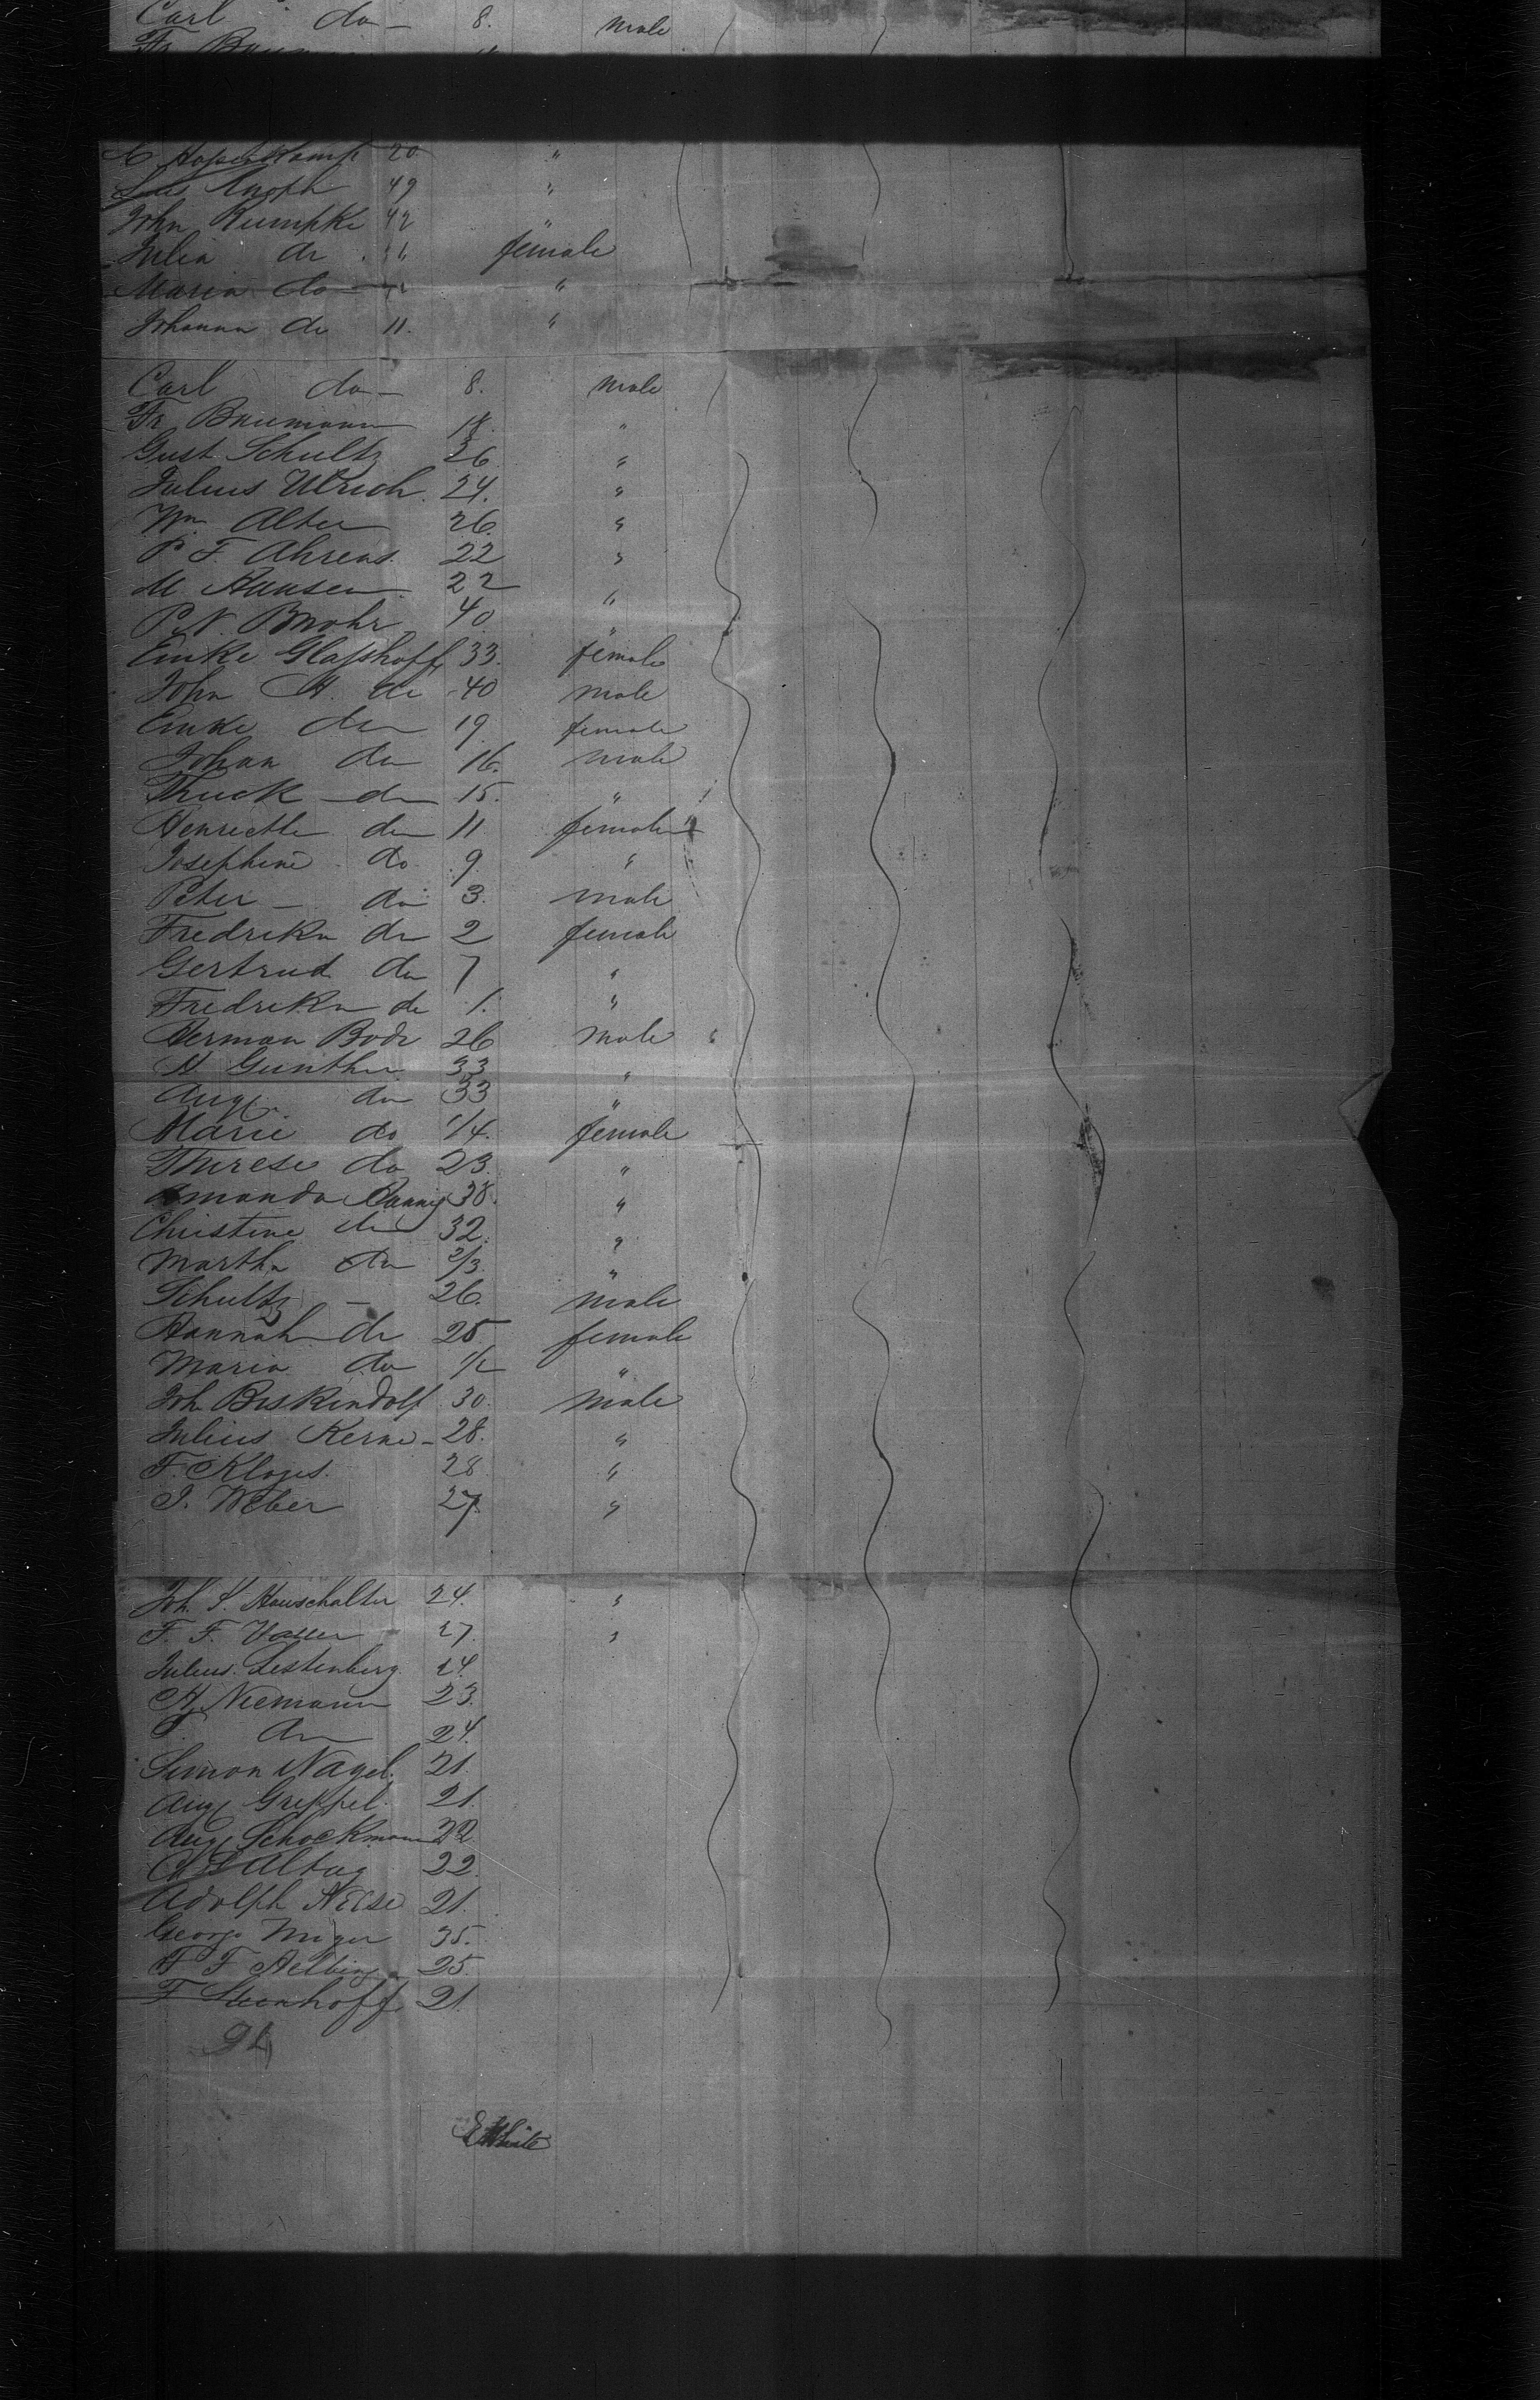 Carl do — 8. male
Fr. Baumann
C. Hopenkamp 20 "
Knoph 49 "
John Rumpke 42 "
Julia do " female
Maria do "
Johanna do 11. "
Carl do — 8. male
Fr. Baumann 18. "
Gust Schultz 26 "
Julius Ulrich 24. "
Wm Alter 26. "
P. F. Ahrens. 22 "
M. Hansen 22 "
P. N. Brohr 40 "
Emke Glasshoff 33. female
John H. do 40 male
Emke do 19 female
Johan do 16. male
Thuck — do 15. "
Henriette do 11 female
Josephine do 9. "
Peter — do 3. male
Fredrika do 2 female
Gertrud do 7 "
Fredrika do 1. "
Herman Bode 26 male
H Gunther 33 "
Aug. do 33 "
Marie do 1/4. female
Therese do 23. "
Amanda 38. "
Christine do 32. "
Martha do 2/3 "
Schultz — 26. male
Hannah do 25 female
Maria do 1/2 "
Joh. Buskendolf 30. male
Julius Kerne — 28. "
F. Kloges. 28 "
J. Weber 27. "
Joh. S. Hauschalter 24. "
F. F. 27. "
Julius Lestenberg 24.
H. Niemann 23.
F. do 24.
Simon Nagel. 21.
Aug Greppel. 21.
Aug Schockmann 22
Altag 22.
Adolph Neise 21.
George Meyer 35.
F F Aelbing 25.
F Steenhoff 21.
94
E White